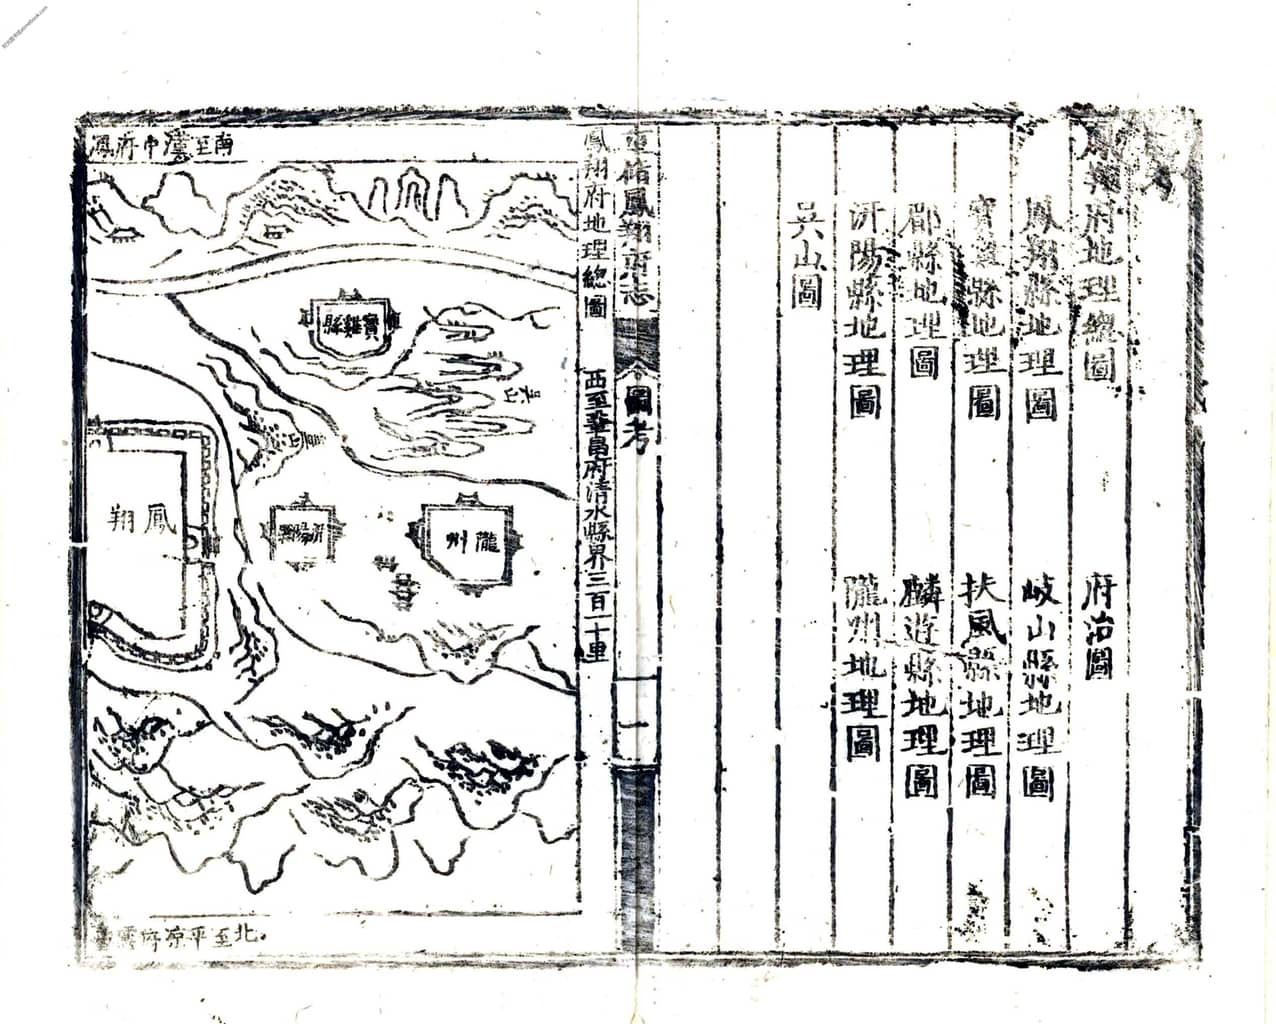 鳳翔府地理總圖
府治圖
鳳翔縣地理圖
岐山縣地理圖
寳雞縣地理圖
扶風縣地理圖
郿縣地理圖
麟遊縣地理圖
汧陽縣地理圖
隴州地理圖
吳山圖
重脩鳳翔府志
圖考
一
鳳翔府地理總圖
西至鞏昌府清水縣界三百一十里
南至漢中府鳳
寳雞縣
吳山
隴州
汧陽縣
鳳翔
北至平凉府